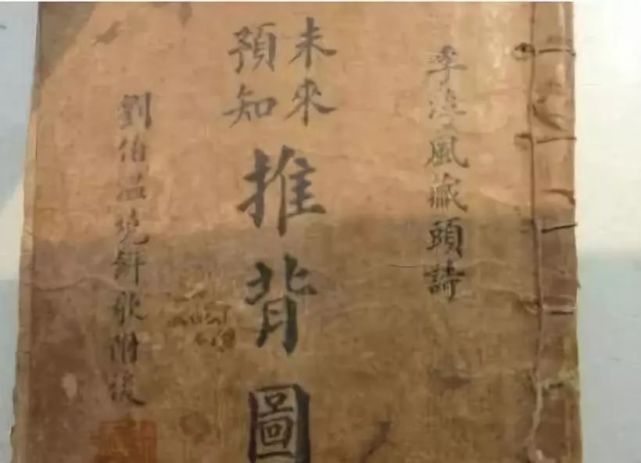 李淳風藏頭詩
未來
預知
推背圖
劉伯温燒餅歌附後